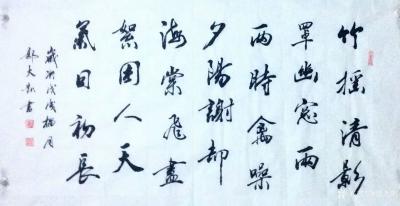 竹搖清影
罩幽窓兩
兩時禽噪
夕陽謝却
海棠飛盡
絮困人天
氣日初長
歲次戊戌梅月